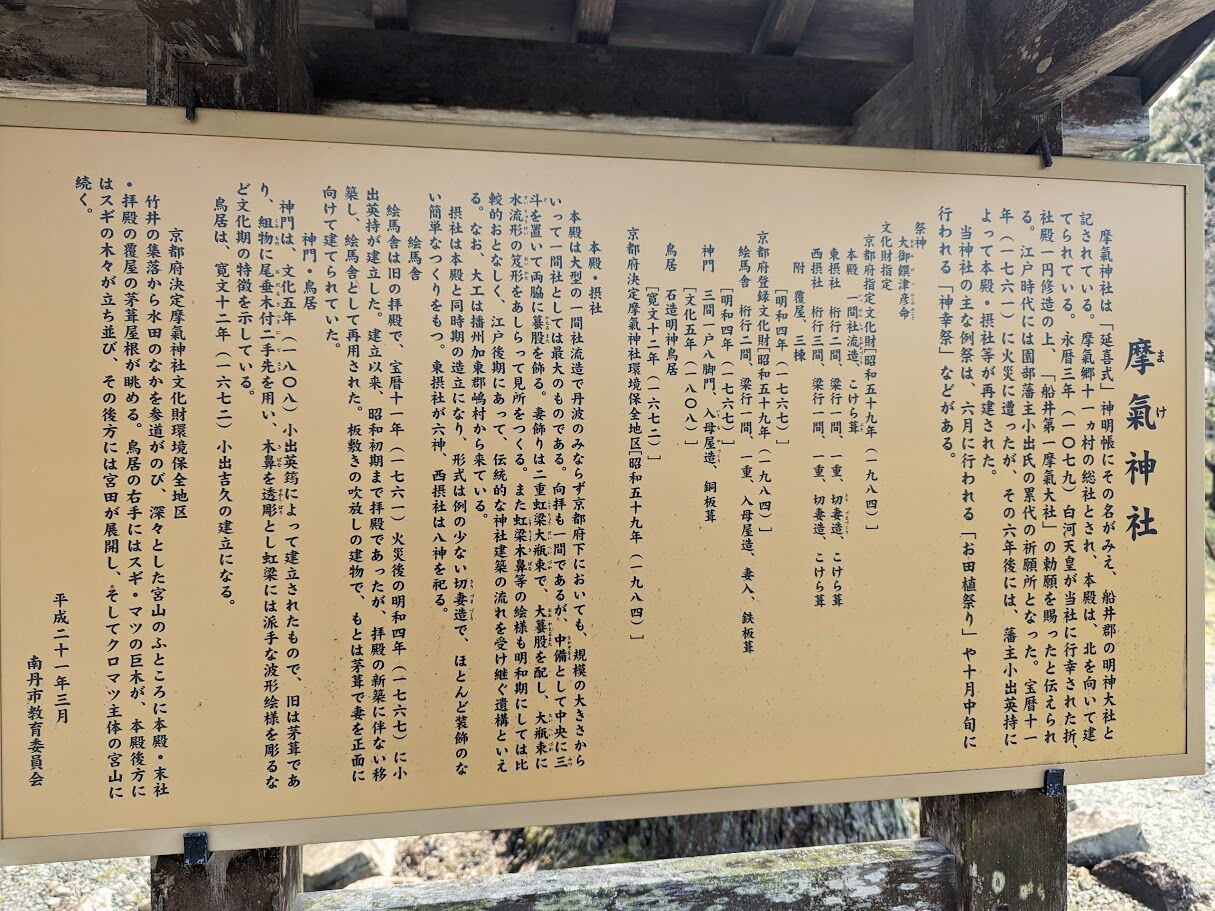 摩氣神社
摩氣神社は「延喜式」神明帳にその名がみえ、船井郡の明神大社と
記されている。摩氣郷十一ヵ村の総社とされ、本殿は、北を向いて建
てられている。永暦三年（一〇七九）白河天皇が当社に行幸された折、
社殿一円修造の上、「船井第一摩氣大社」の勅願を賜ったと伝えられ
る。江戸時代には園部藩主小出氏の累代の祈願所となった。宝暦十一
年（一七六一）に火災に遭ったが、その六年後には、藩主小出英持に
よって本殿・摂社等が再建された。
当神社の主な例祭は、六月に行われる「お田植祭り」や十月中旬に
行われる「神幸祭」などがある。
祭神
大御饌津彦命
文化財指定
京都府指定文化財［昭和五十九年（一九八四）］
本殿　一間社流造、こけら葺
［明和四年（一七六七）］
東摂社　桁行二間、梁行一間、一重、切妻造、こけら葺
西摂社　桁行三間、梁行一間、一重、切妻造、こけら葺
附　覆屋、三棟
京都府登録文化財［昭和五十九年（一九八四）］
絵馬舎　桁行二間、梁行一間、一重、入母屋造、妻入、鉄板葺
［明和四年（一七六七）］
神門　三間一戸八脚門、入母屋造、銅板葺
［文化五年（一八〇八）］
鳥居　石造明神鳥居
［寛文十二年（一六七二）］
京都府決定摩氣神社環境保全地区［昭和五十九年（一九八四）］
本殿・摂社
本殿は大型の一間社流造で丹波のみならず京都府下においても、規模の大きさから
いって一間社としては最大のものである。向拝も一間であるが、中備として中央に三
斗を置いて両脇に蟇股を飾る。妻飾りは二重虹梁大瓶束で、大蟇股を配し、大瓶束に
水流形の笈形をあしらって見所をつくる。また虹梁木鼻等の絵様も明和期にしては比
較的おとなしく、江戸後期にあって、伝統的な神社建築の流れを受け継ぐ遺構といえ
る。なお、大工は播州加東郡嶋村から来ている。
摂社は本殿と同時期の造立になり、形式は例の少ない切妻造で、ほとんど装飾のな
い簡単なつくりをもつ。東摂社が六神、西摂社は八神を祀る。
絵馬舎
絵馬舎は旧の拝殿で、宝暦十一年（一七六一）火災後の明和四年（一七六七）に小
出英持が建立した。建立以来、昭和初期まで拝殿であったが、拝殿の新築に伴ない移
築し、絵馬舎として再用された。板敷きの吹放しの建物で、もとは茅葺で妻を正面に
向けて建てられていた。
神門・鳥居
神門は、文化五年（一八〇八）小出英筠によって建立されたもので、旧は茅葺であ
り、組物に尾垂木付二手先を用い、木鼻を透彫とし虹梁には派手な波形絵様を彫るな
ど文化期の特徴を示している。
鳥居は、寛文十二年（一六七二）小出吉久の建立になる。
京都府決定摩氣神社文化財環境保全地区
竹井の集落から水田のなかを参道がのび、深々とした宮山のふところに本殿・末社
・拝殿の覆屋の茅葺屋根が眺める。鳥居の右手にはスギ・マツの巨木が、本殿後方に
はスギの木々が立ち並び、その後方には宮田が展開し、そしてクロマツ主体の宮山に
続く。
平成二十一年三月
南丹市教育委員会